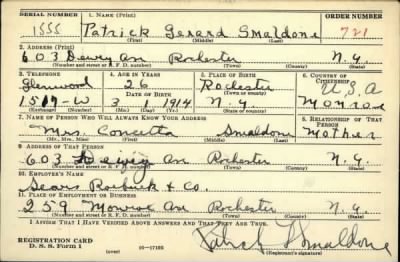 SERIAL NUMBER 1. NAME (Print) ORDER NUMBER
1555 Patrick Gerard Smaldone 721
(First) (Middle) (Last)
2. ADDRESS (Print)
603 Dewey Av Rochester N.Y.
(Number and street or R. F. D. number) (Town) (County) (State)
3. TELEPHONE 4. AGE IN YEARS 5. PLACE OF BIRTH 6. COUNTRY OF CITIZENSHIP
Glenwood 26 Rochester U.S.A
DATE OF BIRTH (Town or county)
1519-W 3 1 1914 N.Y. Monroe
(Exchange) (Number) (Mo.) (Day) (Yr.) (State or country)
7. NAME OF PERSON WHO WILL ALWAYS KNOW YOUR ADDRESS 8. RELATIONSHIP OF THAT PERSON
Mrs. Concetta Smaldone Mother
(Mr., Mrs., Miss) (First) (Middle) (Last)
9. ADDRESS OF THAT PERSON
603 Dewey Av Rochester N.Y.
(Number and street or R. F. D. number) (Town) (County) (State)
10. EMPLOYER'S NAME
Sears Roebuck & Co.
11. PLACE OF EMPLOYMENT OR BUSINESS
259 Monroe Av Rochester N.Y.
(Number and street or R. F. D. number) (Town) (County) (State)
I AFFIRM THAT I HAVE VERIFIED ABOVE ANSWERS AND THAT THEY ARE TRUE.
REGISTRATION CARD
D. S. S. FORM 1 (over) 16—17105 Patrick Smaldone
(Registrant's signature)